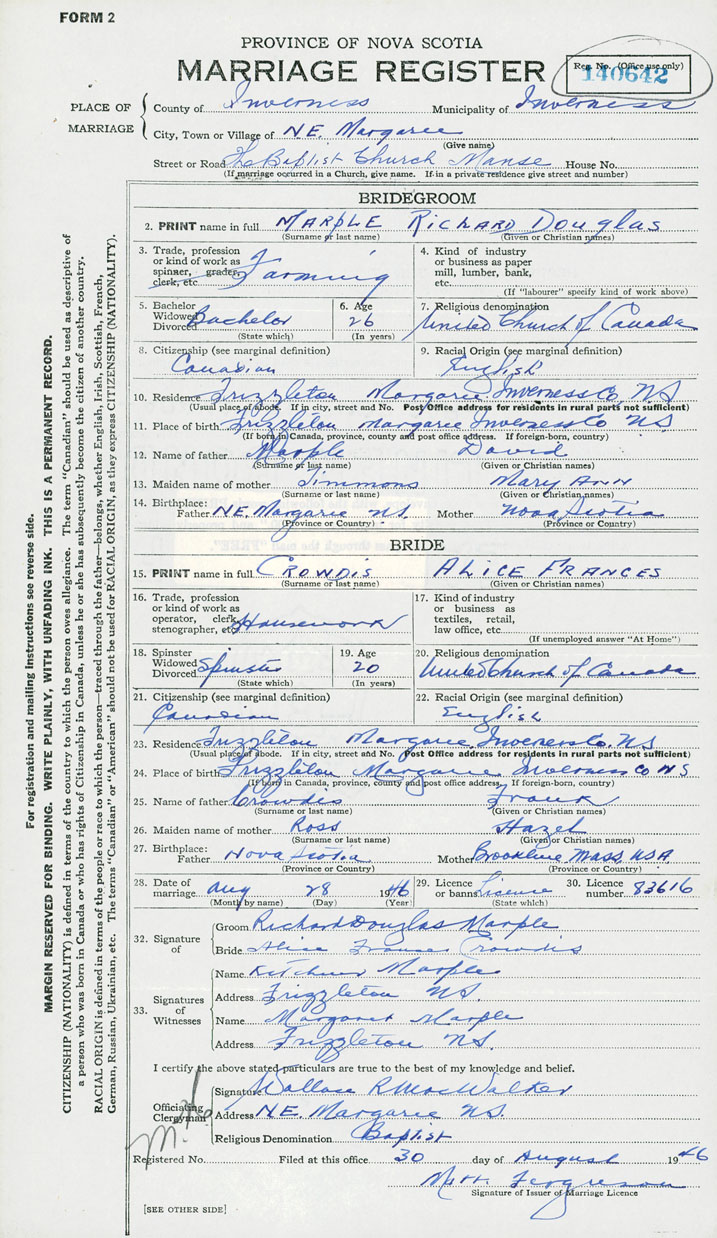 FORM 2
PROVINCE OF NOVA SCOTIA
MARRIAGE REGISTER
Reg. No. (Office use only)
140642
PLACE OF MARRIAGE
County of Inverness Municipality of Inverness
City, Town or Village of N.E. Margaree
(Give name)
Street or Road The Baptist Church Manse House No.
(If marriage occurred in a Church, give name. If in a private residence give street and number)
BRIDEGROOM
2. PRINT name in full MARPLE RICHARD DOUGLAS
(Surname or last name) (Given or Christian names)
3. Trade, profession or kind of work as spinner, grader, clerk, etc. Farming
4. Kind of industry or business as paper mill, lumber, bank, etc.
(If "labourer" specify kind of work above)
5. Bachelor Widowed Divorced Bachelor
(State which)
6. Age 26
(In years)
7. Religious denomination
United Church of Canada
8. Citizenship (see marginal definition)
Canadian
9. Racial Origin (see marginal definition)
English
10. Residence Frizzleton Margaree Inverness Co. NS
(Usual place of abode. If in city, street and No. Post Office address for residents in rural parts not sufficient)
11. Place of birth Frizzleton Margaree Inverness Co NS
(If born in Canada, province, county and post office address. If foreign-born, country)
12. Name of father Marple David
(Surname or last name) (Given or Christian names)
13. Maiden name of mother Timmons Mary Ann
(Surname or last name) (Given or Christian names)
14. Birthplace:
Father N.E. Margaree N.S. Mother Nova Scotia
(Province or Country) (Province or Country)
BRIDE
15. PRINT name in full CROWDIS ALICE FRANCES
(Surname or last name) (Given or Christian names)
16. Trade, profession or kind of work as operator, clerk, stenographer, etc. Housework
17. Kind of industry or business as textiles, retail, law office, etc.
(If unemployed answer "At Home")
18. Spinster Widowed Divorced Spinster
(State which)
19. Age 20
(In years)
20. Religious denomination
United Church of Canada
21. Citizenship (see marginal definition)
Canadian
22. Racial Origin (see marginal definition)
English
23. Residence Frizzleton Margaree Inverness Co. NS
(Usual place of abode. If in city, street and No. Post Office address for residents in rural parts not sufficient)
24. Place of birth Frizzleton Margaree Inverness Co NS
(If born in Canada, province, county and post office address. If foreign-born, country)
25. Name of father Crowdis Frank
(Surname or last name) (Given or Christian names)
26. Maiden name of mother Ross Hazel
(Surname or last name) (Given or Christian names)
27. Birthplace:
Father Nova Scotia Mother Brookline Mass, USA
(Province or Country) (Province or Country)
28. Date of marriage Aug 28 1946
(Month by name) (Day) (Year)
29. Licence or banns Licence
(State which)
30. Licence number 83616
32. Signature of
Groom Richard Douglas Marple
Bride Alice Frances Crowdis
33. Signatures of Witnesses
Name Kitchner Marple
Address Frizzleton NS.
Name Margaret Marple
Address Frizzleton NS.
I certify the above stated particulars are true to the best of my knowledge and belief.
Officiating Clergyman
Signature Wallace R MacWalker
Address N.E. Margaree NS.
Religious Denomination Baptist
Registered No. Filed at this office 30 day of August 1946
Ferguson
Signature of Issuer of Marriage Licence
[SEE OTHER SIDE]
For registration and mailing instructions see reverse side.
MARGIN RESERVED FOR BINDING. WRITE PLAINLY, WITH UNFADING INK. THIS IS A PERMANENT RECORD.
CITIZENSHIP (NATIONALITY) is defined in terms of the country to which the person owes allegiance. The term "Canadian" should be used as descriptive of
a person who was born in Canada or who has rights of Citizenship in Canada, unless he or she has subsequently become the citizen of another country.
RACIAL ORIGIN is defined in terms of the people or race to which the person—traced through the father—belongs, whether English, Irish, Scottish, French,
German, Russian, Ukrainian, etc. The terms "Canadian" or "American" should not be used for RACIAL ORIGIN, as they express CITIZENSHIP (NATIONALITY).